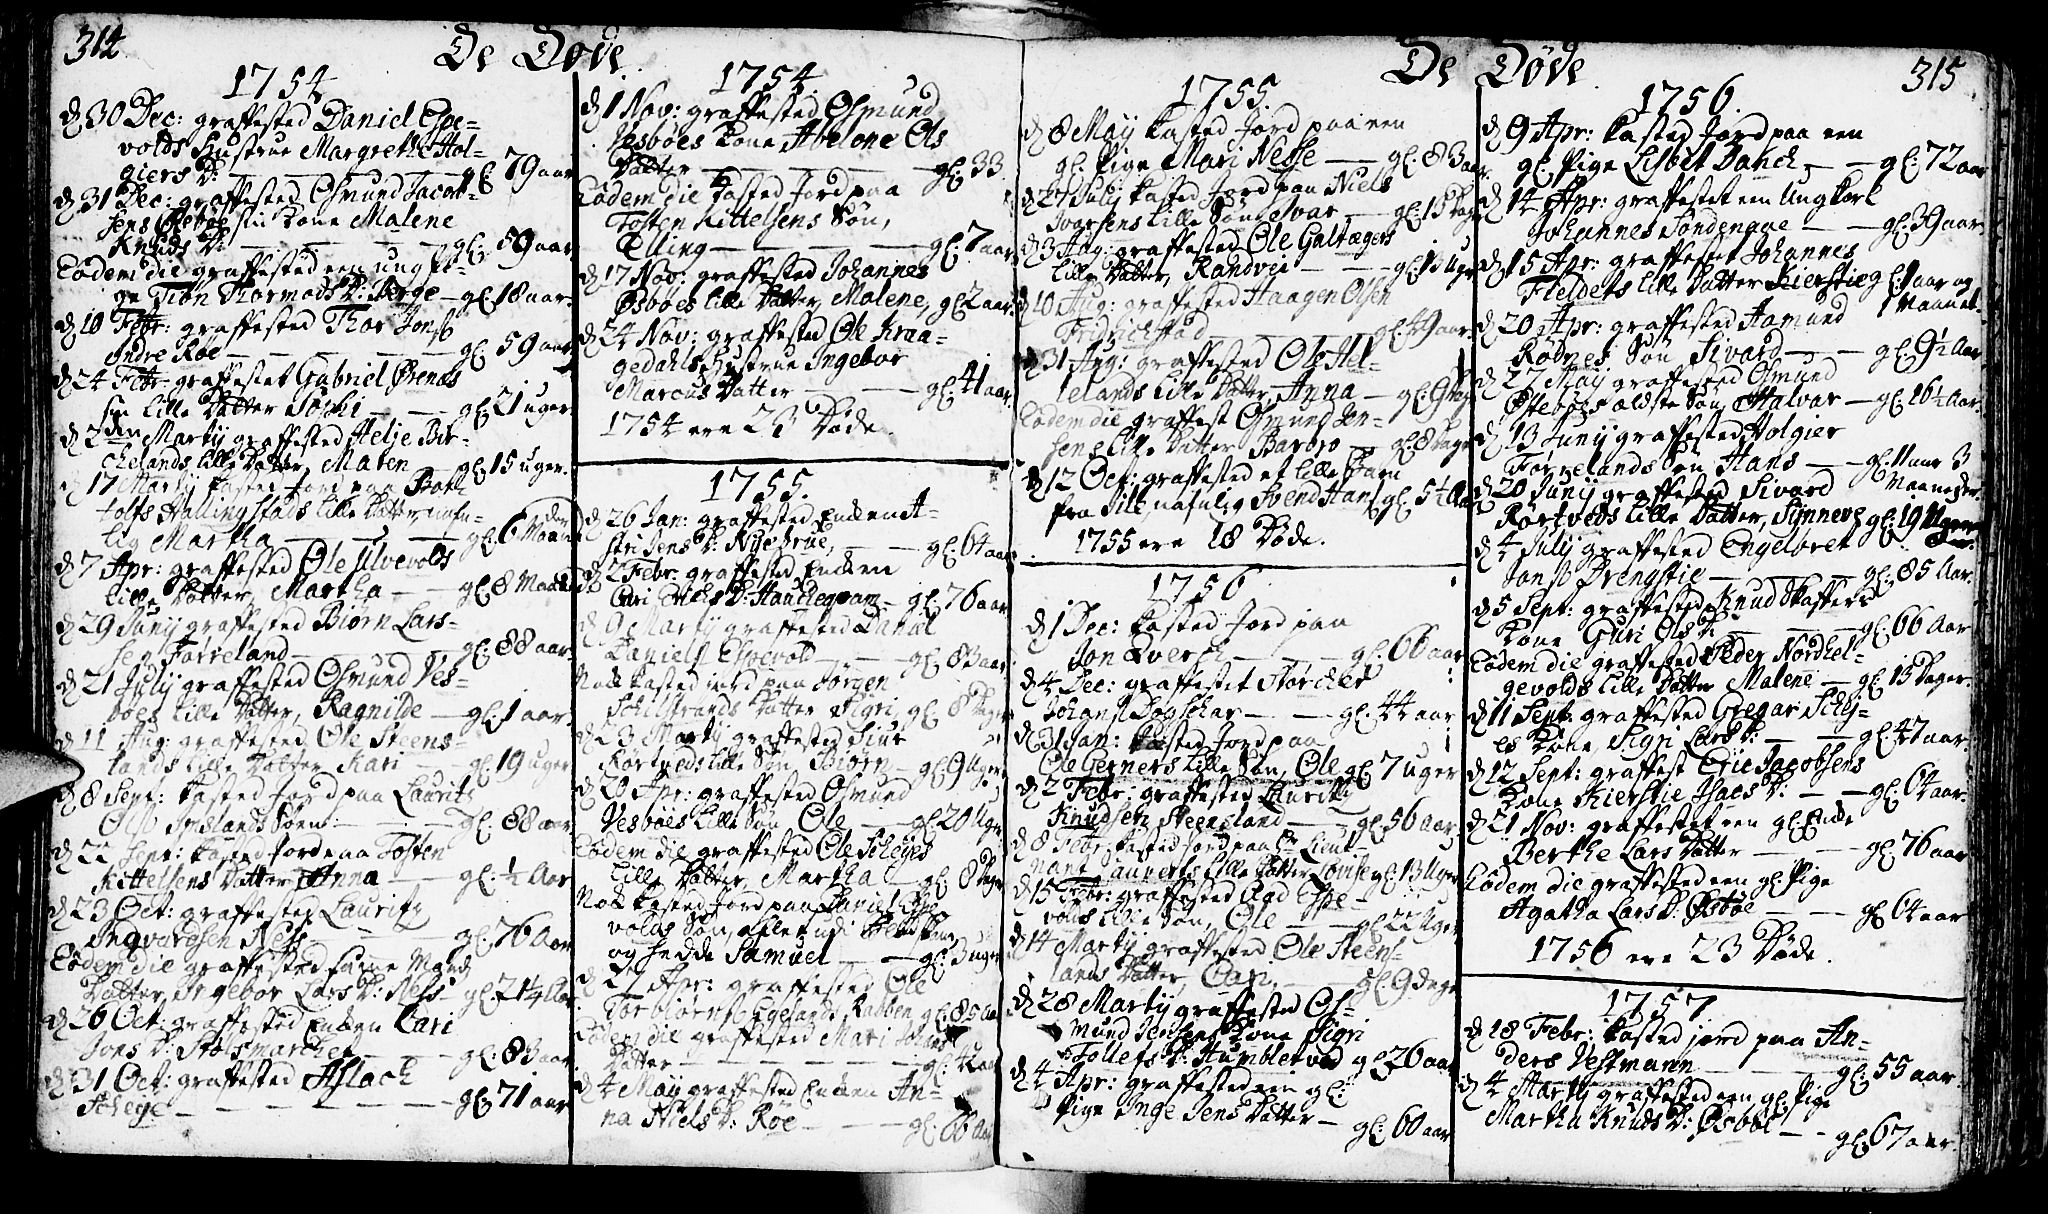 314.
De Døde
1754
d 30 Dec: graffested Daniel Espe=
volds Hustrue Margrethe Hol=
giers D: — gl: 79 aar
d 31 Dec: graffested Osmund Jacob=
sens Østbøe sin Kone Malene
Knuds D: — gl: 59 aar
Eodem die graffested een ung Pi=
ge Siøn Thormods D: Berge — gl: 18 aar.
d 10 Febr: graffested Thor Jons
Indre Røe — gl: 59 aar
d 24 Febr: graffestet Gabriel Ørenæs
sin lille Datter Sophi — gl: 21 uger.
d 2den Martij graffested Helje Bir=
chelands lille Datter, Maren — gl: 15 uger.
d 17 Martij kasted Jord paa
tolfs Hallingstads lille Datter, nafn=
lig Martha — gl: 6 Maaneder
d 7 Apr: graffested Ole Ulvevolds
lille Datter, Martha — gl: 8 Maan
d 29 Junij graffested Biørn Lars=
sen Førreland — gl: 88 aar.
d 21 Julij graffested Osmund Ves=
bøes lille Datter, Ragnilde — gl: 1 aar.
d 11 Aug: graffested Ole Steens=
lands lille Datter Kari — gl: 19 uger
d 8 Sept: kasted Jord paa Lauritz
Ols Imslands Søen: — gl: 88 aar.
d 22 Sept: kasted Jord paa Tosten
Kittelsens Datter Anna — gl: 1/2 Aar
d 23 Oct: graffested Lauritz
Ingvardsen Ness — gl: 76 Aar
Eodem die graffested samme Mands
Datter, Ingebor Lars D: Ness — gl: 21 1/4 Aar
d 26 Oct: graffested Enken Kari
Jons D: Stølsmarchen — gl: 83 aar
d 31 Oct: graffested Aslach
Scheye — gl: 71 aar
1754.
d 1 Nov: graffested Osmund
Vesbøes Kone Abelone Ols
Datter — gl: 33.
Eodem die kasted Jord paa
Tosten Kittelsens Søn,
Elling — gl: 7 aar
d 17 Nov: graffested Johannes
Østbøes lille Datter, Malene, gl: 2 aar.
d 24 Nov: graffested Ole Kraa=
gedahls Hustrue Ingebor
Marcus Datter — gl: 41 aar.
1754 ere 23 Døde.
1755.
d 26 Jan: graffested Enken
Jens D: Nysetrue, — gl: 64 aar
d 2 Febr: graffested Enken
Kari Erichs D: Hauchegvam — gl: 76 aar
d 9 Martij graffested Daniel
Daniels Espevold — gl: 83 aar
Nok kasted Jord paa Jørgen
Schiestrands Datter Sigri, gl: 8 Dager
d 23 Martij graffested Siur
Rørtveds lille Søn, Biørn — gl: 9 Uger
d 20 Apr: graffested Osmund
Vesbøes lille Søn Ole — gl: 20 Uger
Eodem die graffested Ole Scheyes
lille Datter, Martha — gl: 8 Dager
Nok kasted Jord paa Daniel Espe
volds Søn,
og hedde Samuel — gl: 3 uger
d 27 Apr: graffested Ole
Torbiørns Egelands gl: 85 aar
Eodem die graffested Mari Johans
Datter — gl:
d 4 Maij graffested Enken An=
na Niels D: Røe — gl: 66 Aar
De Døde.
315
1755.
d 8 Maij kasted Jord paa een
gl: Pige Mari Nesse — gl: 83 aar.
d 27 Julij kasted Jord paa Niels
Ivarsens lille Søn Ivar — gl: 15 Dage
d 3 Aug: graffested Ole Galtægers
lille Datter, Randvei — gl: 13 Uger
d 10 Aug: graffested Haagen Olsen
Fridrichstad — gl: 49 aar.
d 31 Aug: graffested Ole Hel=
lelands lille Datter, Anna — gl: 9 Dag
Eodem die graffest Osmund Jen=
sens lille Datter Barbro — gl: 8 Dage
d 12 Oct: graffested et lille Barn
fra Ilse, nafnlig Svend Hans gl: 5 1/2 Aar
1755 ere 18 Døde.
1756
d 1 Dec: kasted Jord paa
Jon Qverch — gl: 66 aar
d 4 Dec: graffestet Størcher
Johans Dogschar — gl: 44 aar
d 31 Jan: kasted Jord paa
Ole Gerners lille Søn, Ole gl: 7 uger
d 2 Febr: graffested Lauritz
Knudsen Steensland — gl: 56 Aar
d 8 Febr: kasted Jord paa Hr Lieut=
nant Lauverts lille Datter Lovise gl: 13 Uger
d 15 Febr: graffested Aad Espe=
volds lille Søn, Ole — gl: 22 Uger
d 14 Martij graffested Ole Steens=
lands Datter, Cari, — gl: 9 dage
d 28 Martij graffested Os=
mund Jensens Kone Sigri
Tollefs D: Humbletved gl: 26 aar
d 4 Apr: graffested een gl:
Pige Inge Jens Datter — gl: 60 aar
1756.
d 9 Apr: kasted Jord paa een
gl: Pige Lisbet Danch, — gl: 72 aar
d 14 Apr: graffestet een Ungkarl
Johannes Søndenaae — gl: 39 aar
d 15 Apr: graffestet Johannes
Fieldets lille Datter Kierstie gl: 1 aar og
1 Maanet.
d 20 Apr: graffested Aamund
Rødnes Søn Sivard — gl: 9 1/2 Aar
d 27 Maij graffested Osmund
Østebøes ældste Søn, Halvar — gl: 16 1/2 Aar.
d 13 Junij graffested Holgier
Førrelands Søn Hans — gl: 11 aar 3
Maaneder.
d 20 Junij graffested Sivard
Rørtveds lille Datter, Synneve gl: 19 Uger
d 4 Julij graffested Engelbret
Jons Drengstie — gl: 85 Aar.
d 5 Sept: graffested Knud Skaffers
Kone Guri Ols D: — gl: 66 Aar
Eodem die graffested Peder Nordhel=
gevolds lille Datter Malene — gl: 13 Dager.
d 11 Sept: graffested Gregar Schey=
es Kone, Sigri Lars D: — gl: 47 aar.
d 12 Sept: graffest Eric Jacobsens
Kone Kierstie Isacs D: — gl: 64 aar.
d 21 Nov: graffestet een gl: Enke
Berthe Lars Datter — gl: 76 aar
Eodem die graffested een gl: Pige
Agatha Lars D: Østbøe — gl: 64 aar
1756 ere 23 Døde.
1757.
d 18 Febr: kasted jord paa An=
ders Vestmann — gl: 55 aar.
d 4 Martij graffested een gl: Pige
Martha Knuds D: Østbøe — gl: 67 aar.